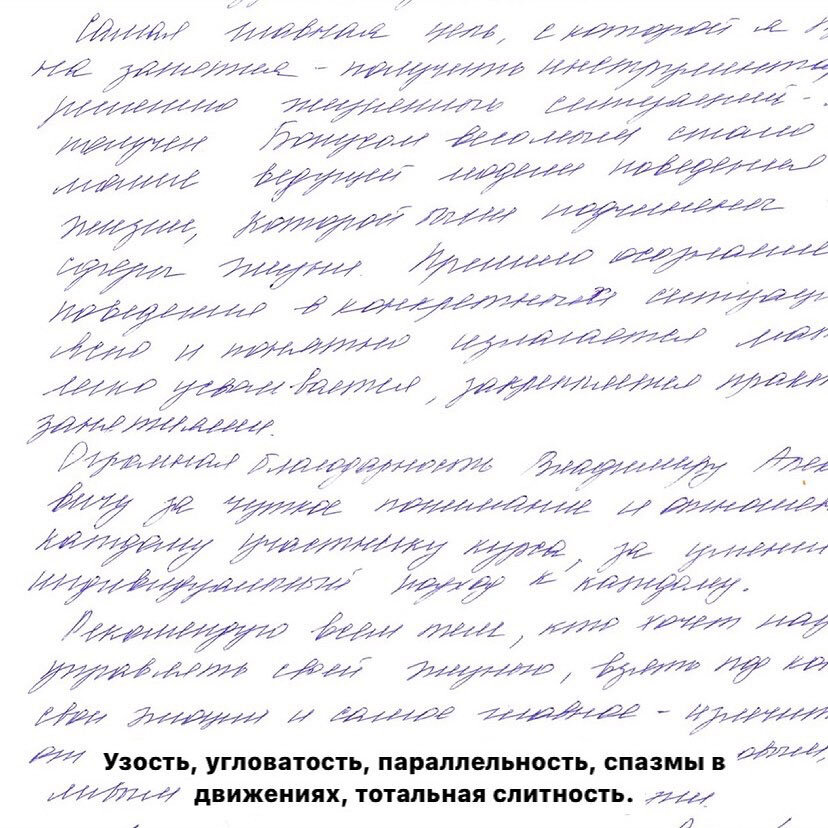 Самая главная цель, с которой я
на занятия - получить инструмента
решению жизненного ситуаций -
получен Бонусом весомым стало
мание ведущей модели поведения
жизни, которой были подчинены
сферы жизни. Пришло осознание
поведения в конкретных ситуац
Ясно и понятно излагается мат
легко усваивается, закрепляется практ
занятиями.
Огромная благодарность Владимиру Алек
вичу за чуткое понимание и отношен
каждому участнику курса, за умени
индивидуальный подход к каждому.
Рекомендую всем тем, кто хочет нау
управлять своей жизнью, взять под ко
свои эмоции и самое главное - излечит
от
Узость, угловатость, параллельность, спазмы в
движениях, тотальная слитность.